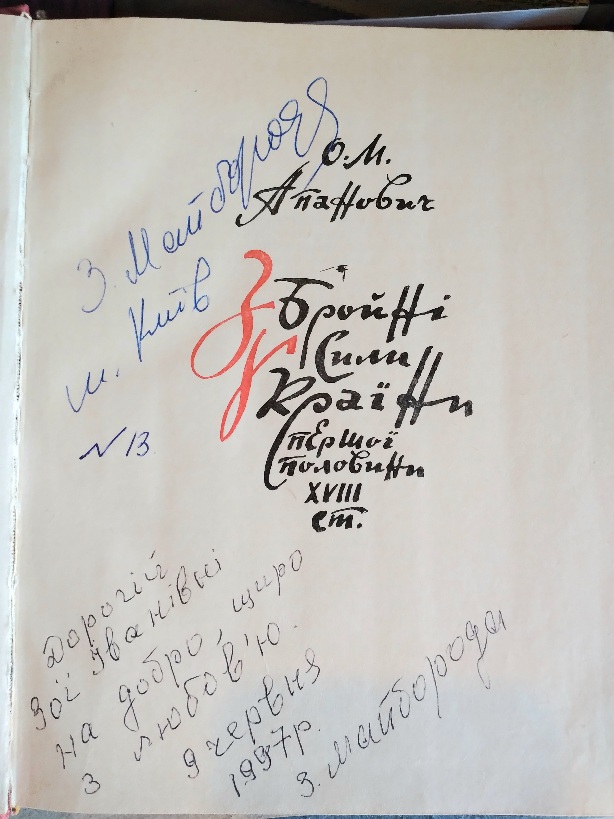 З. Майборода
м. Київ
N 13
О.М.
Апанович
Збройні
Сили
України
першої
половини
XVIII
ст.
Дорогій
Зої Іванівні
на добро, щиро
з любов'ю.
9 червня
1997р.
З. Майборода